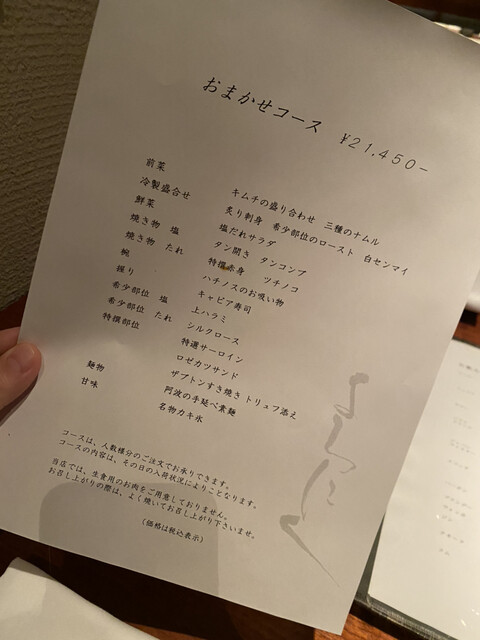 おまかせコース ¥21,450-
前菜 キムチの盛り合わせ 三種のナムル
冷製盛合せ 炙り刺身 希少部位のロースト 白センマイ
鮮菜 塩だれサラダ
焼き物 塩 タン開き タンコンブ
焼き物 たれ 特撰赤身 ツチノコ
椀 ハチノスのお吸い物
握り キャビア寿司
希少部位 塩 上ハラミ
希少部位 たれ シルクロース
特撰部位 特選サーロイン
ロゼカツサンド
ザブトンすき焼き トリュフ添え
麺物 阿波の手延べ素麺
甘味 名物カキ氷
コースは、人数様分のご注文でお承りできます。
コースの内容は、その日の入荷状況によりことなります。
当店では、生食用のお肉をご用意しておりません。
お召し上がりの際は、よく焼いてお召し上がり下さいませ。
(価格は税込表示)
よろにく